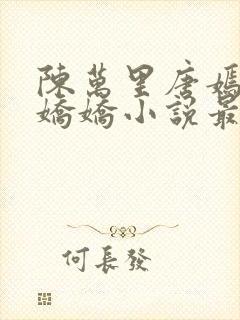 陳萬里唐嫣
嬌嬌小說最
何長發